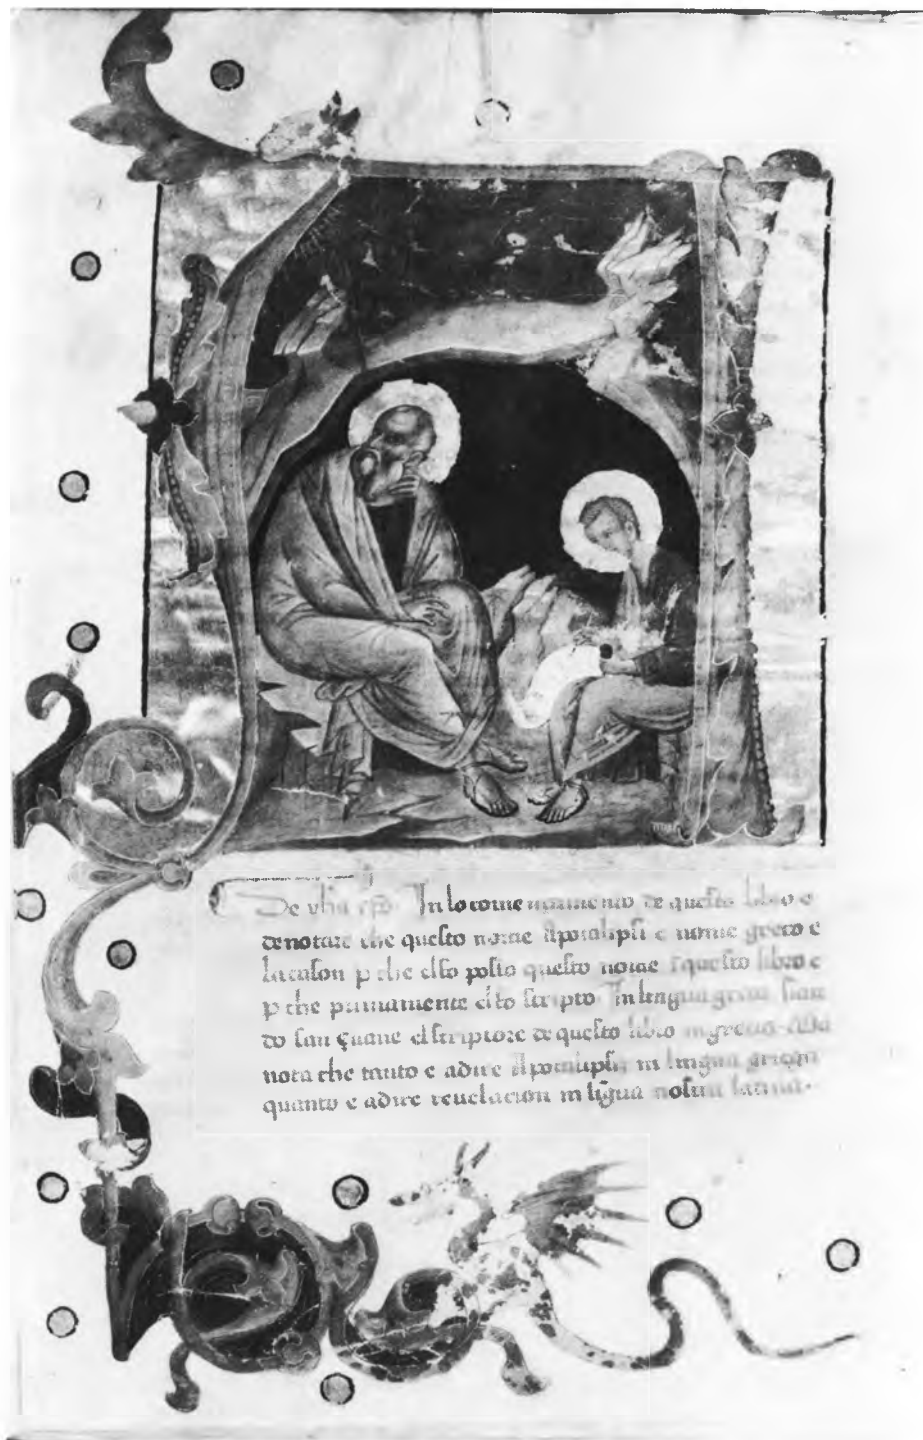 In lo comenzamento de questo libro e
denotare che questo nome Apocalipsi e nome greco e
la cason p che elfo posto questo nome i questo libro e
p che primamente elfo scripto. In lengua greca sian
do san çuane el scriptore de questo libro in grecia. Ma
nota che tanto e adire Apocalipsis in lingua griega
quanto e adire reuelacion in ligua nostra latina.